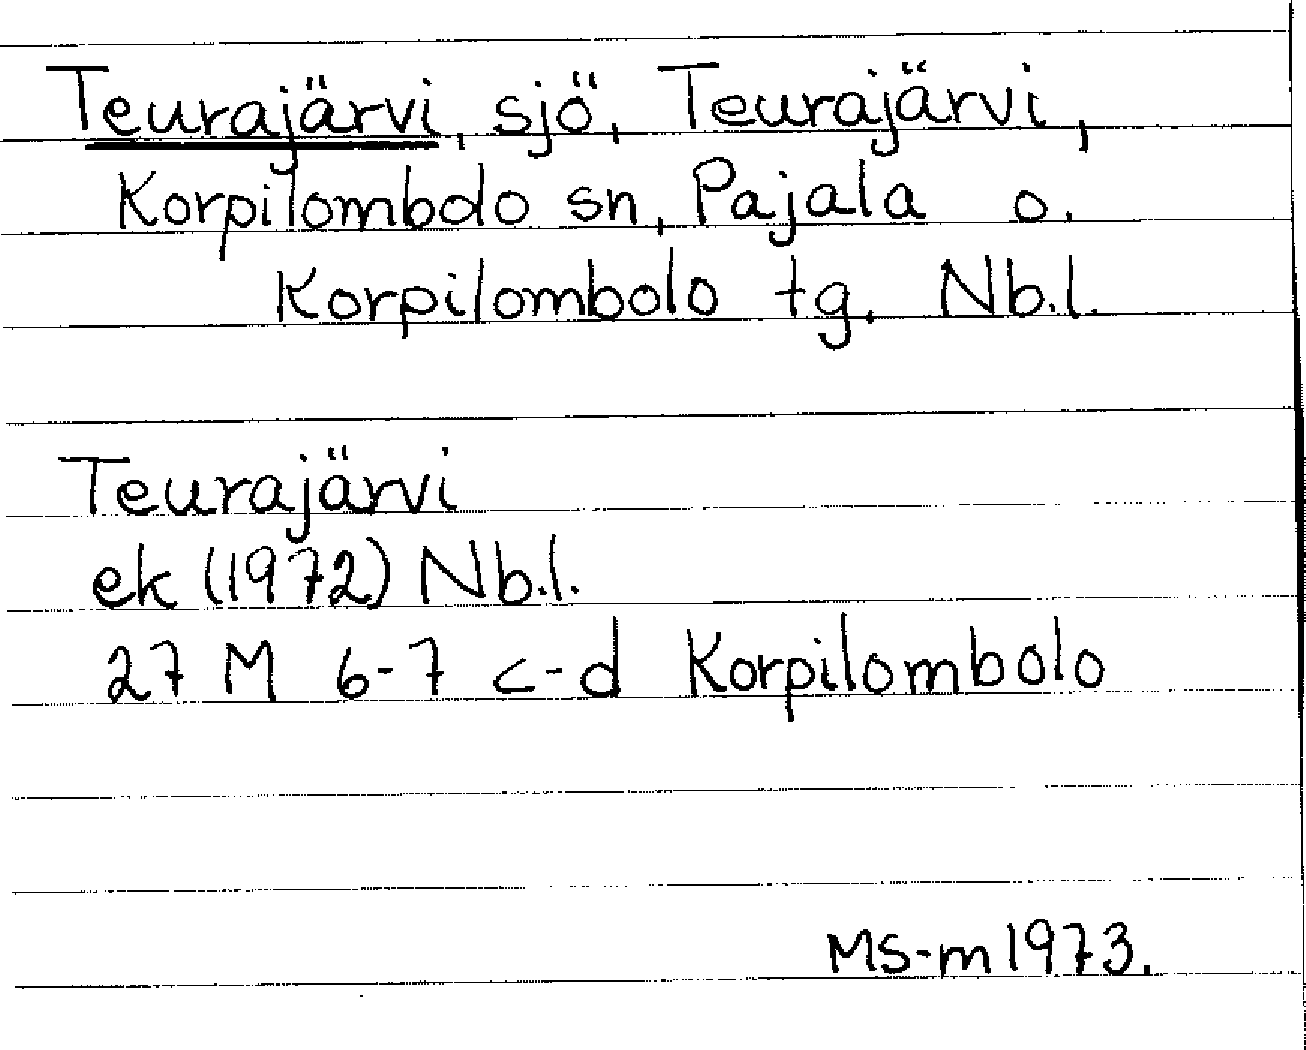 Teurajärvi, sjö, Teurajärvi,
Korpilombolo sn, Pajala o.
Korpilombolo tg. Nb.l.
Teurajärvi
ek (1972) Nb.l.
27 M 6-7 c-d Korpilombolo
MS-m 1973.